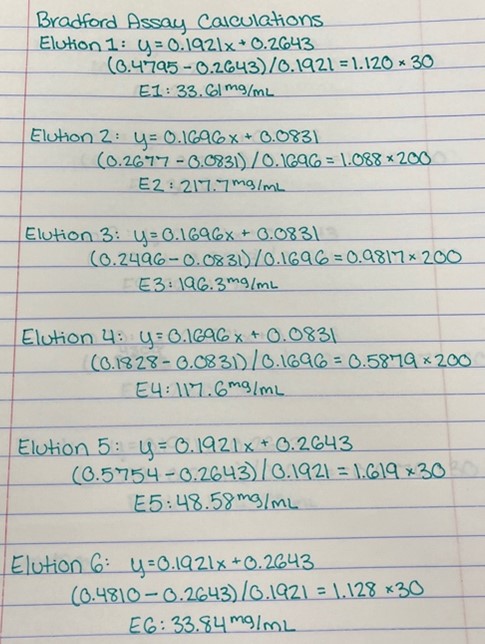 Bradford Assay Calculations
Elution 1: y=0.1921x+0.2643
(0.4795-0.2643)/0.1921=1.120×30
E1: 33.61mg/mL
Elution 2: y=0.1696x+0.0831
(0.2677-0.0831)/0.1696=1.088×200
E2: 217.7mg/mL
Elution 3: y=0.1696x+0.0831
(0.2496-0.0831)/0.1696=0.9817×200
E3: 196.3mg/mL
Elution 4: y=0.1696x+0.0831
(0.1828-0.0831)/0.1696=0.5879×200
E4: 117.6mg/mL
Elution 5: y=0.1921x+0.2643
(0.5754-0.2643)/0.1921=1.619×30
E5: 48.58mg/mL
Elution 6: y=0.1921x+0.2643
(0.4810-0.2643)/0.1921=1.128×30
E6: 33.84mg/mL